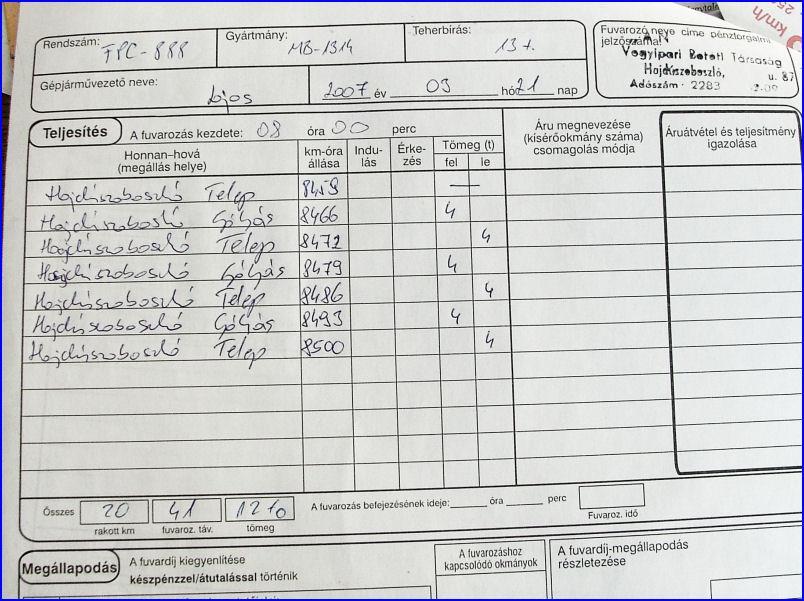 km/h
Rendszám: FPC-888 Gyártmány: MB-1314 Teherbírás: 13 t.
Fuvarozó neve címe pénzforgalmi jelzőszáma:
Vegyipari Betéti Társaság
Hajdúszoboszló, u. 87
Adószám 2283
Gépjárművezető neve: Lajos 2007 év 03 hó 21 nap
Teljesítés A fuvarozás kezdete: 08 óra 00 perc
Honnan–hová (megállás helye) km-óra állása Indulás Érkezés Tömeg (t) fel le Áru megnevezése (kísérőokmány száma) csomagolás módja Áruátvétel és teljesítmény igazolása
Hajdúszoboszló Telep 8459 —
Hajdúszoboszló Gólyás 8466 4
Hajdúszoboszló Telep 8472 4
Hajdúszoboszló Gólyás 8479 4
Hajdúszoboszló Telep 8486 4
Hajdúszoboszló Gólyás 8493 4
Hajdúszoboszló Telep 8500 4
Összes 20 41 12 A fuvarozás befejezésének ideje: óra perc
rakott km fuvaroz. táv. tömeg Fuvaroz. idő
Megállapodás A fuvardíj kiegyenlítése készpénzzel/átutalással történik
A fuvarozáshoz kapcsolódó okmányok
A fuvardíj-megállapodás részletezése